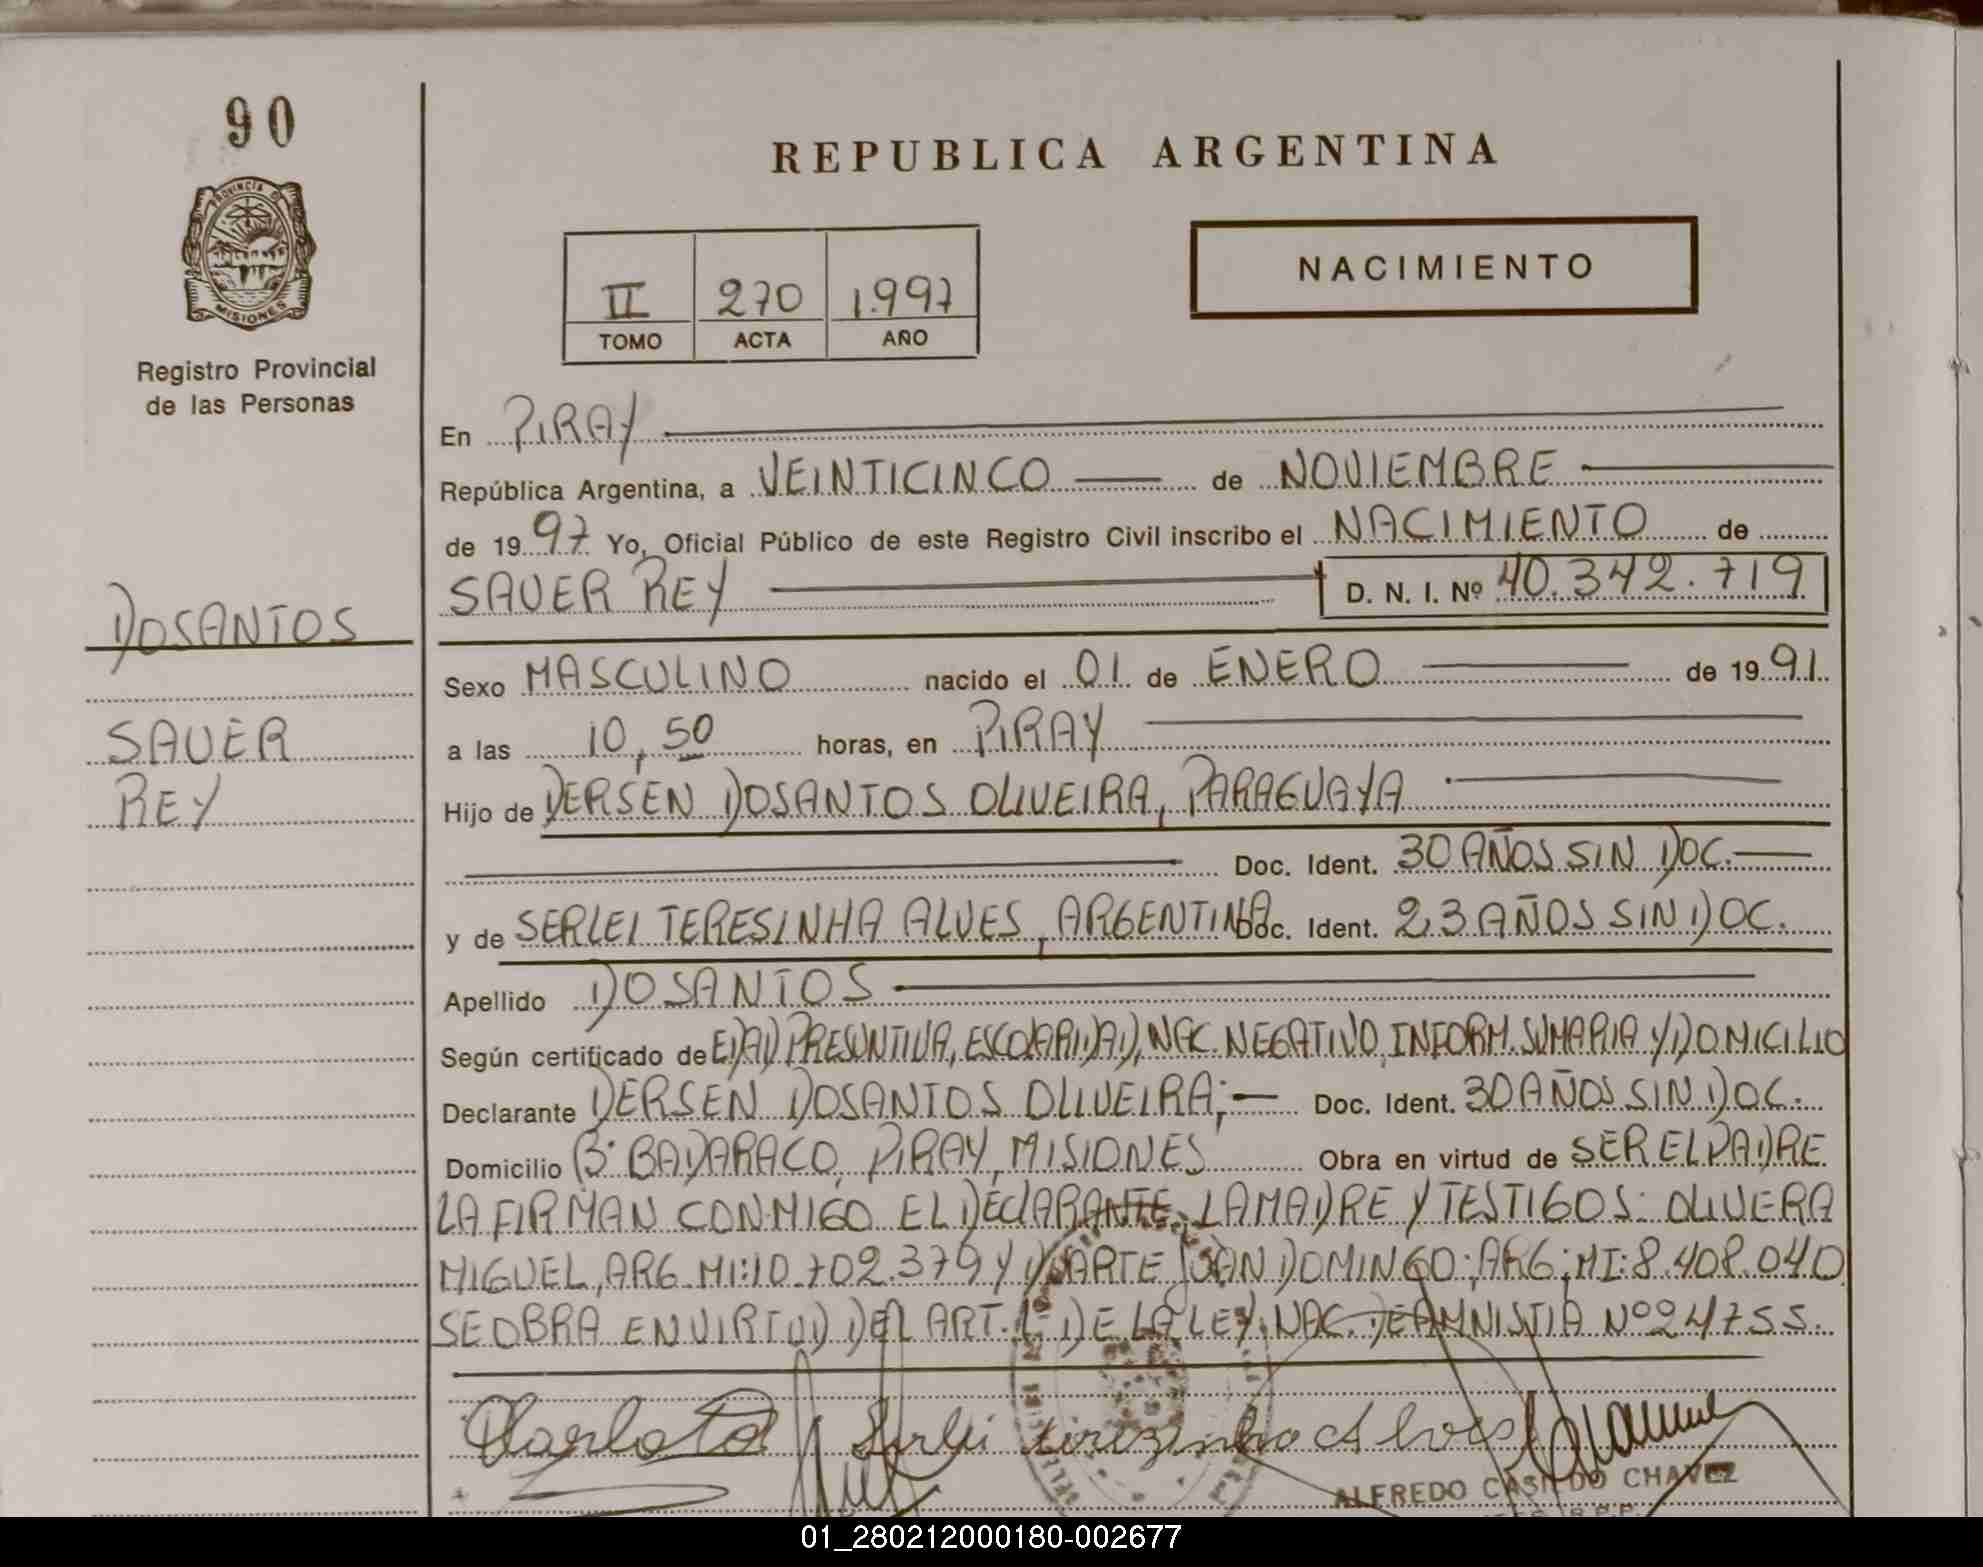 90
PROVINCIA D
MISIONES
Registro Provincial
de las Personas
DOSANTOS
SAUER
REY
REPUBLICA ARGENTINA
II 270 1.997
TOMO ACTA AÑO
NACIMIENTO
En PIRAY
República Argentina, a VEINTICINCO de NOVIEMBRE
de 1997 Yo, Oficial Público de este Registro Civil inscribo el NACIMIENTO de
SAUER REY D. N. I. Nº 40.342.719
Sexo MASCULINO nacido el 01 de ENERO de 1991.
a las 10,50 horas, en PIRAY
Hijo de DERSEN DOSANTOS OLIVEIRA, PARAGUAYA
Doc. Ident. 30 AÑOS SIN DOC.
y de SERLEI TERESINHA ALVES, ARGENTINA Doc. Ident. 23 AÑOS SIN DOC.
Apellido DOSANTOS
Según certificado de EDAD PRESUNTIVA, ESCOLARIDAD, NAC. NEGATIVO, INFORM. SUMARIA Y DOMICILIO
Declarante DERSEN DOSANTOS OLIVEIRA; Doc. Ident. 30 AÑOS SIN DOC.
Domicilio Bº BADARACO, PIRAY, MISIONES Obra en virtud de SER EL PADRE
LA FIRMAN CONMIGO EL DECLARANTE, LA MADRE Y TESTIGOS: OLIVERA
MIGUEL, ARG. MI:10.702.379 Y DUARTE JUAN DOMINGO; ARG; MI: 8.408.040
SE OBRA EN VIRTUD DEL ART. 1º DE LA LEY NAC. DE AMNISTIA Nº 24755.
ALFREDO CASILDO CHAVEZ
01_280212000180-002677